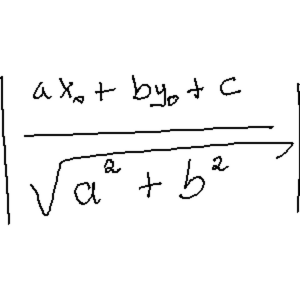 | ax₀ + by₀ + c |
| √(a² + b²) |